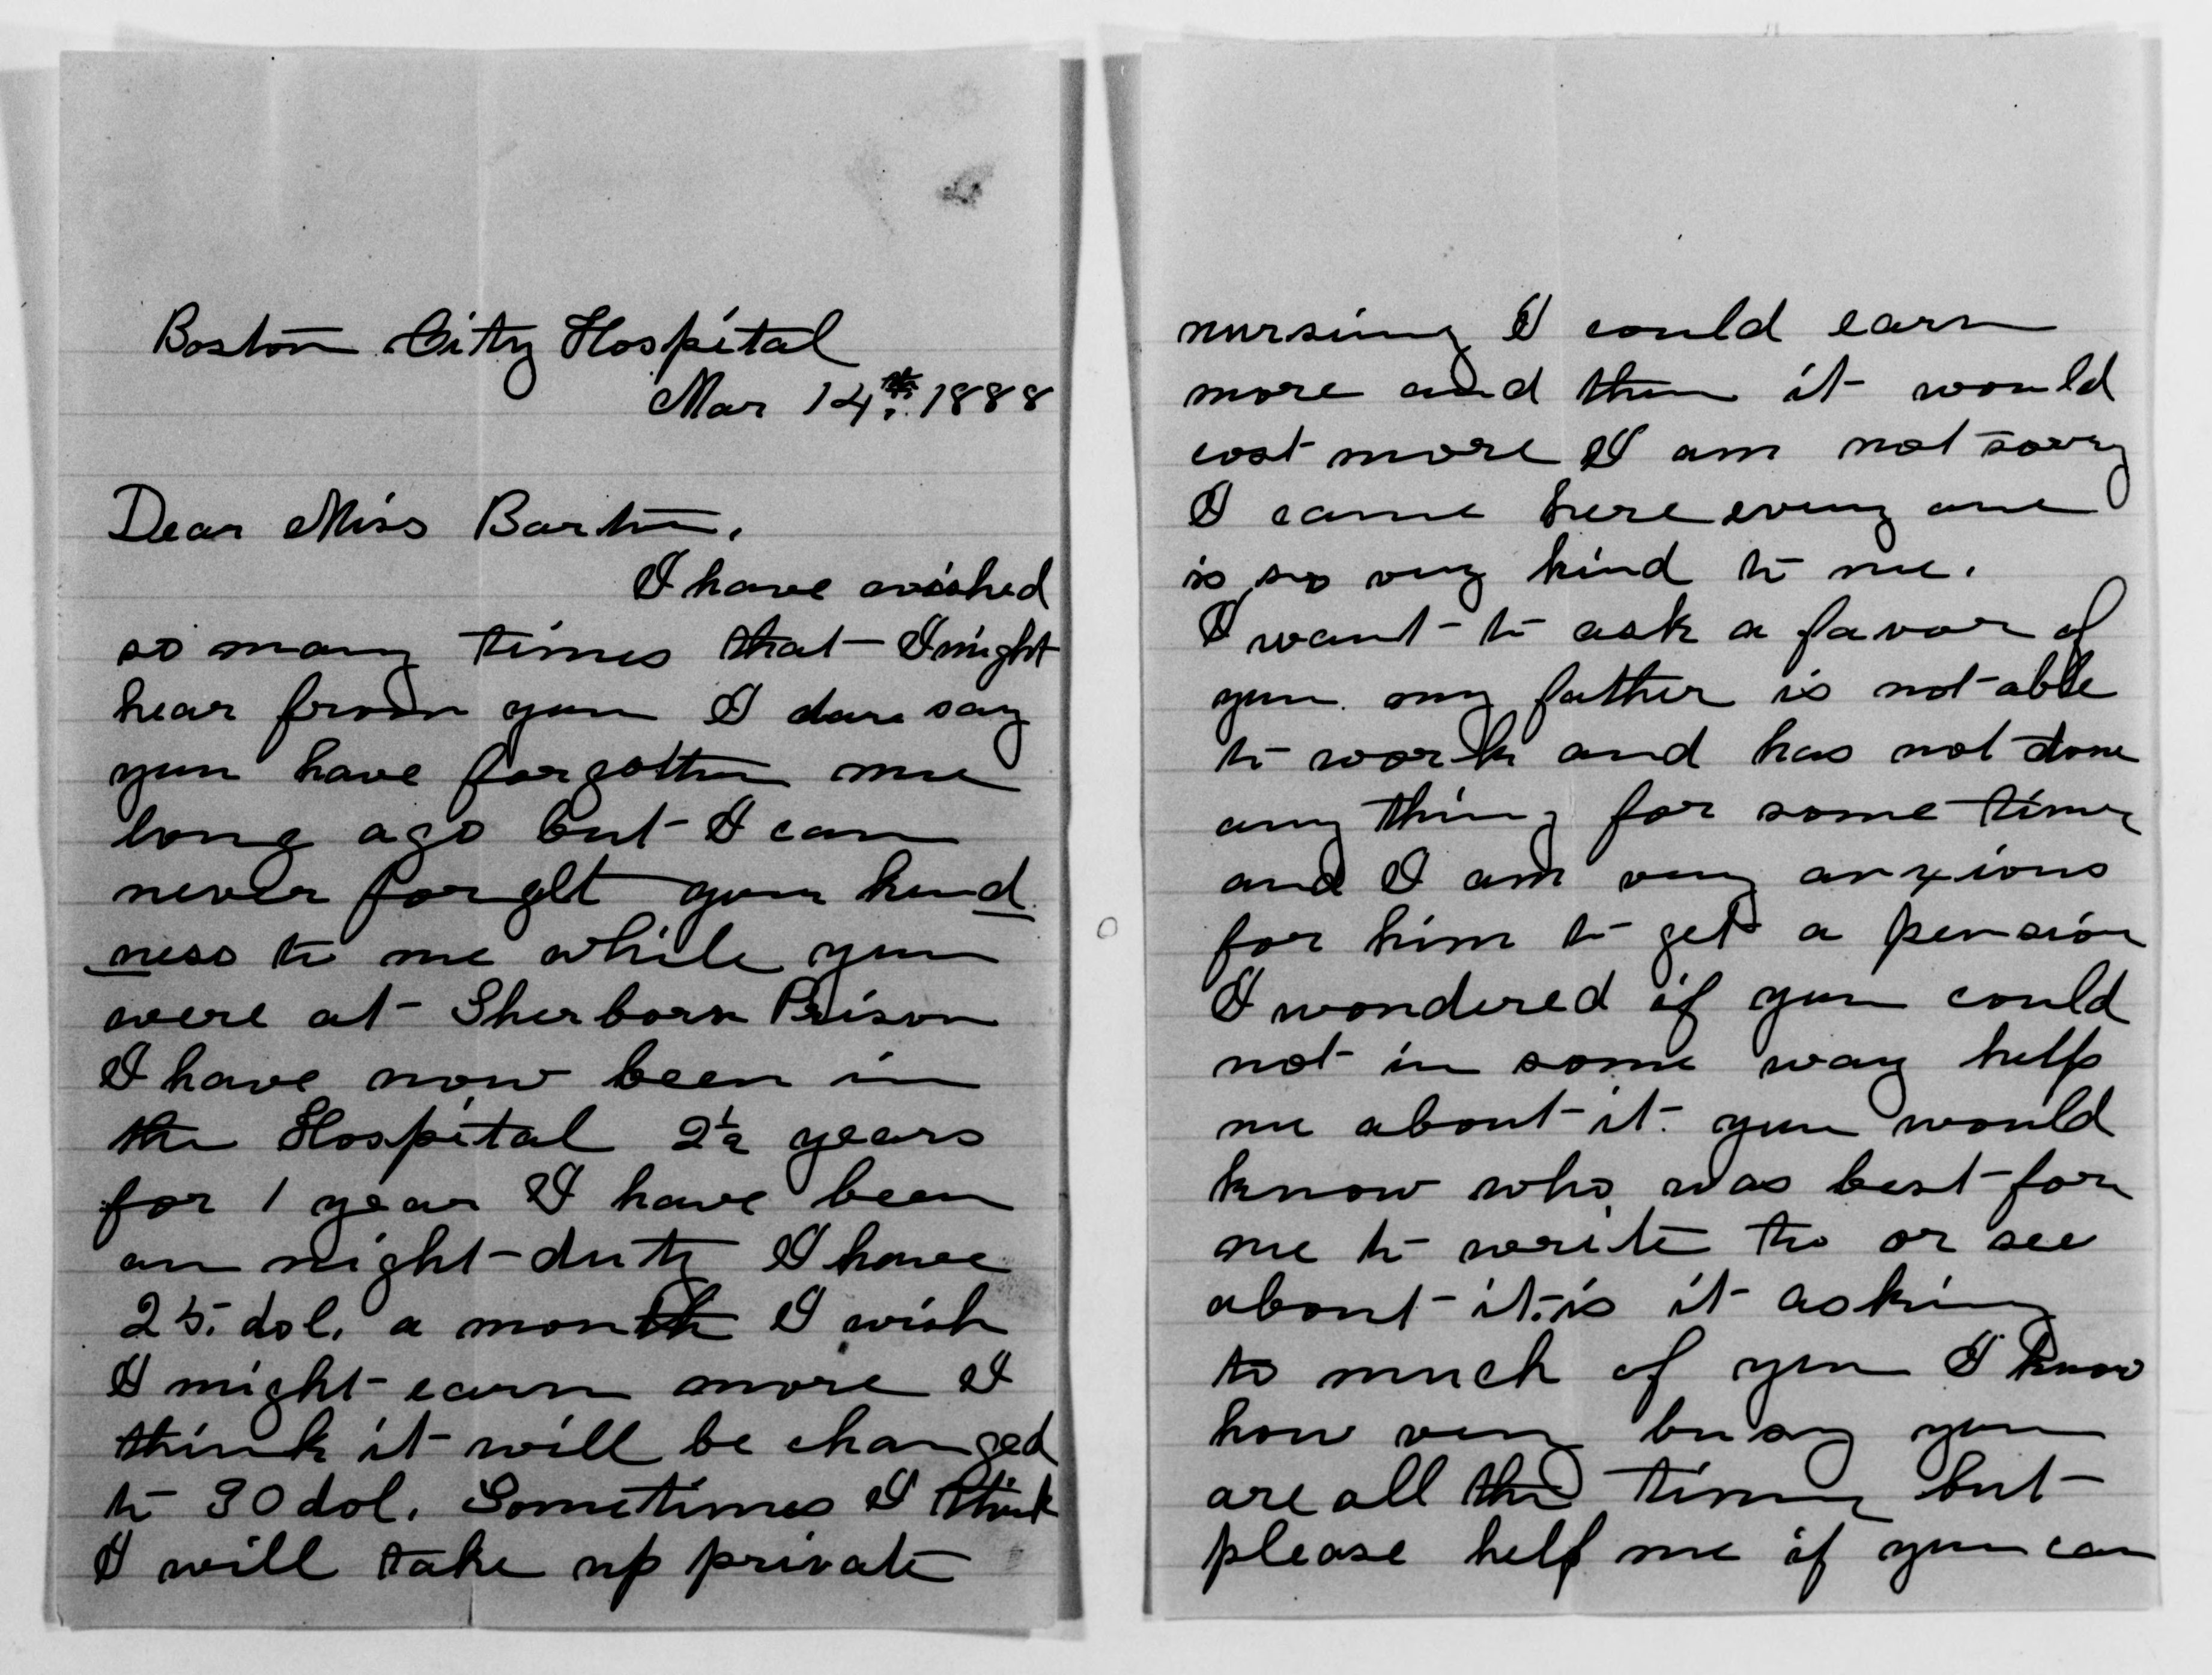 Boston City Hospital
Mar 14th. 1888
Dear Miss Barton,
I have wished
so many times that I might
hear from you I dare say
you have forgotten me
long ago but I can
never forget your kind
ness to me while you
were at Sherborn Prison
I have now been in
the Hospital 2½ years
for 1 year I have been
on night duty I have
25. dol. a month I wish
I might earn more I
think it will be changed
to 30 dol. Sometimes I think
I will take up private
nursing I could earn
more and then it would
cost more I am not sorry
I came here every one
is so very kind to me.
I want to ask a favor of
you. my father is not able
to work and has not done
any thing for some time
and I am very anxious
for him to get a pension
I wondered if you could
not in some way help
me about it. you would
know who was best for
me to write to or see
about it. is it asking
to much of you I know
how very busy you
are all the time but
please help me if you can